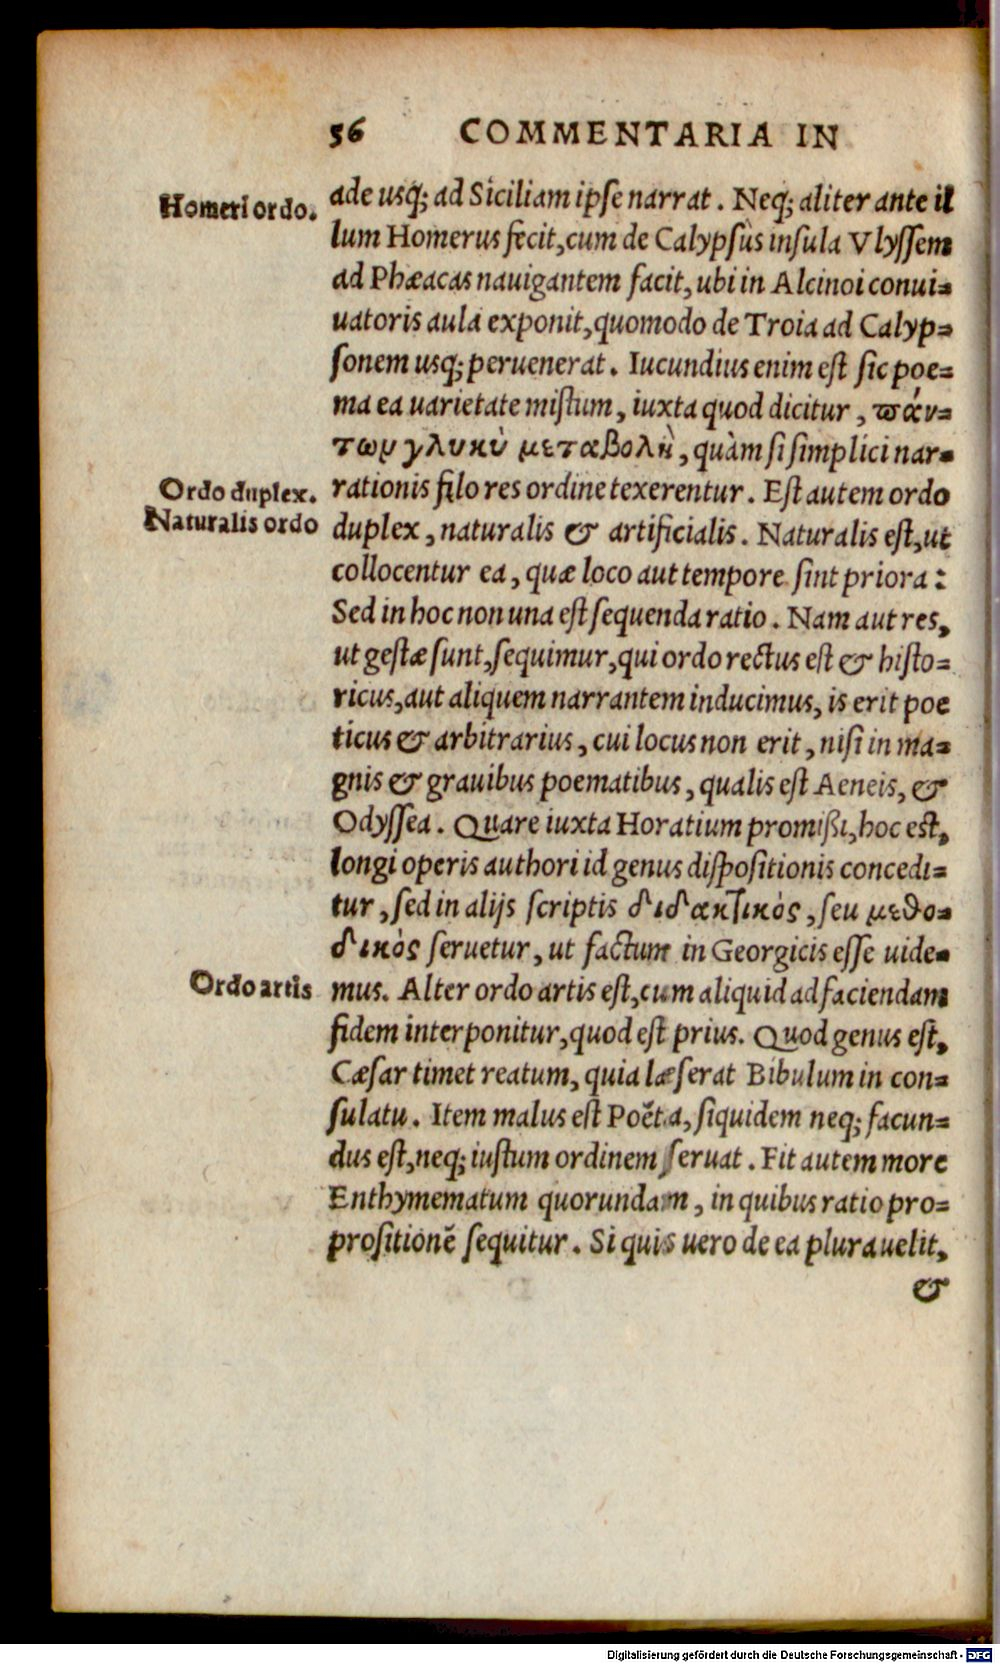 56 COMMENTARIA IN
Homeri ordo.
ade usq; ad Siciliam ipse narrat. Neq; aliter ante il
lum Homerus fecit, cum de Calypsùs insula Vlyssem
ad Phæacas nauigantem facit, ubi in Alcinoi conui=
uatoris aula exponit, quomodo de Troia ad Calyp=
sonem usq; peruenerat. Iucundius enim est sic poe=
ma ea uarietate mistum, iuxta quod dicitur, πάν=
των γλυκὺ μεταβολὴ, quàm si simplici nar=
Ordo duplex.
rationis filo res ordine texerentur. Est autem ordo
Naturalis ordo
duplex, naturalis & artificialis. Naturalis est, ut
collocentur ea, quæ loco aut tempore sint priora:
Sed in hoc non una est sequenda ratio. Nam aut res,
ut gestæ sunt, sequimur, qui ordo rectus est & histo=
ricus, aut aliquem narrantem inducimus, is erit poe
ticus & arbitrarius, cui locus non erit, nisi in ma=
gnis & grauibus poematibus, qualis est Aeneis, &
Odyssea. Quare iuxta Horatium promißi, hoc est,
longi operis authori id genus dispositionis concedi=
tur, sed in alijs scriptis διδακτικὸς, seu μεθο=
δικὸς seruetur, ut factum in Georgicis esse uide=
Ordo artis
mus. Alter ordo artis est, cum aliquid ad faciendam
fidem interponitur, quod est prius. Quod genus est,
Cæsar timet reatum, quia læserat Bibulum in con=
sulatu. Item malus est Poëta, siquidem neq; facun=
dus est, neq; iustum ordinem seruat. Fit autem more
Enthymematum quorundam, in quibus ratio pro=
propositionē sequitur. Si quis uero de ea plura uelit,
&
Digitalisierung gefördert durch die Deutsche Forschungsgemeinschaft - DFG